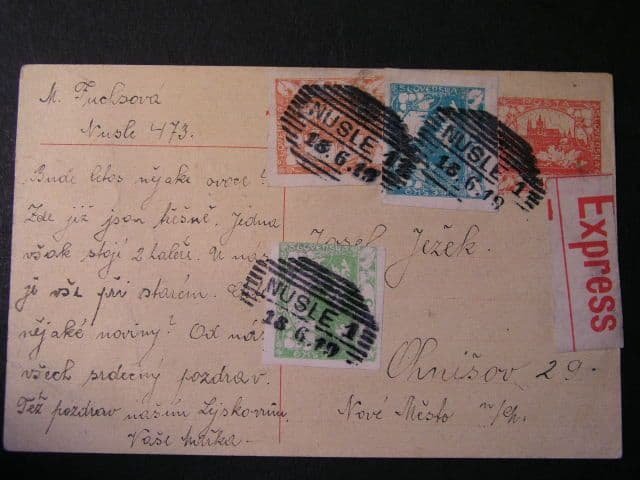 M. Fuchsová
Nusle 473.
Bude letos nějaké ovoce?
Zde již jsou třešně. Jedna
však stojí 2 haléře. U nás
je vše při starém.
nějaké noviny? Od nás
všech srdečný pozdrav.
Též pozdrav našim
Vaše
ČESKOSLOVENSKÁ
POŠTA
NUSLE 1
18.6.19
NUSLE 1
18.6.19
NUSLE 1
18.6.19
Express
Josef Ježek.
Ohnišov 29.
Nové Město n/M.